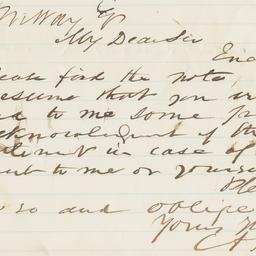 My Dear Sir
Enc
ease find the note,
esume that you
to me some
acknowledgment of the
in case of
to me or yourse
so and oblige
Yours